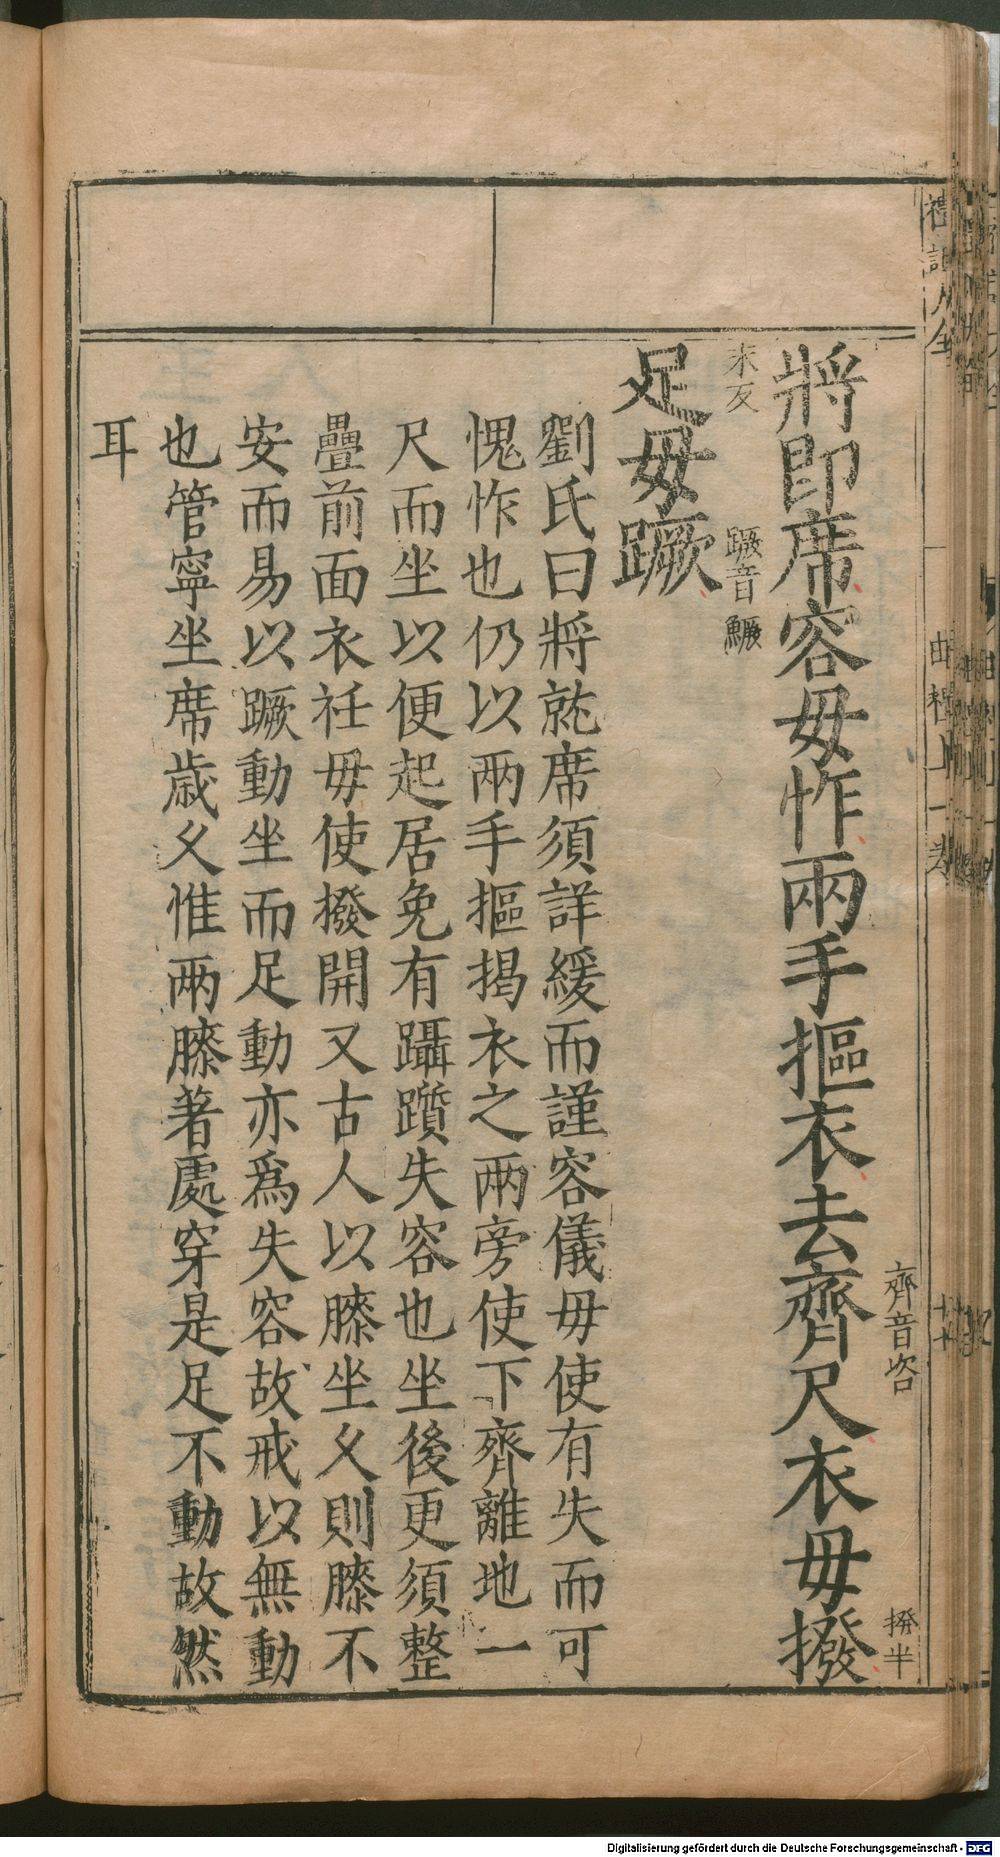 禮記大全
曲禮上一卷
齊音咨
撥半
將即席容毋怍兩手摳衣去齊尺衣毋撥
末反
蹶音鱖
足毋蹶
劉氏曰將就席須詳緩而謹容儀毋使有失而可
愧怍也仍以兩手摳揭衣之兩旁使下齊離地一
尺而坐以便起居免有躡躓失容也坐後更須整
疊前面衣衽毋使撥開又古人以膝坐乆則膝不
安而易以蹶動坐而足動亦爲失容故戒以無動
也管寧坐席歳乆惟兩膝著處穿是足不動故然
耳
Digitalisierung gefördert durch die Deutsche Forschungsgemeinschaft - DFG